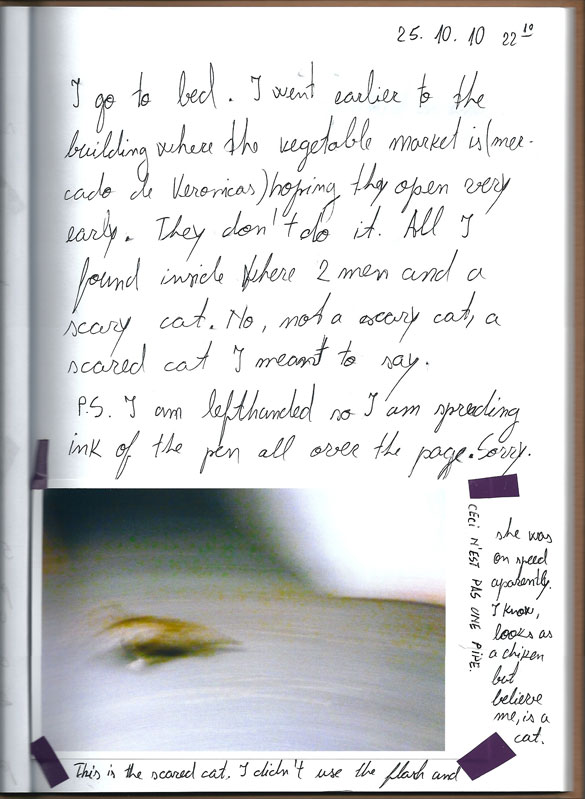 25. 10. 10 22 10
I go to bed. I went earlier to the
building where the vegetable market is (mer-
cado de Veronicas) hoping they open very
early. They don't do it. All I
found inside where 2 men and a
scary cat. No, not a scary cat, a
scared cat I meant to say.
P.S. I am lefthanded so I am spreding
ink of the pen all over the page. Sorry.
CECI N'EST PAS UNE PIPE.
This is the scared cat. I didn't use the flash and
she was
on speed
aparently.
I know,
looks as
a chiken
but
believe
me, is a
cat.